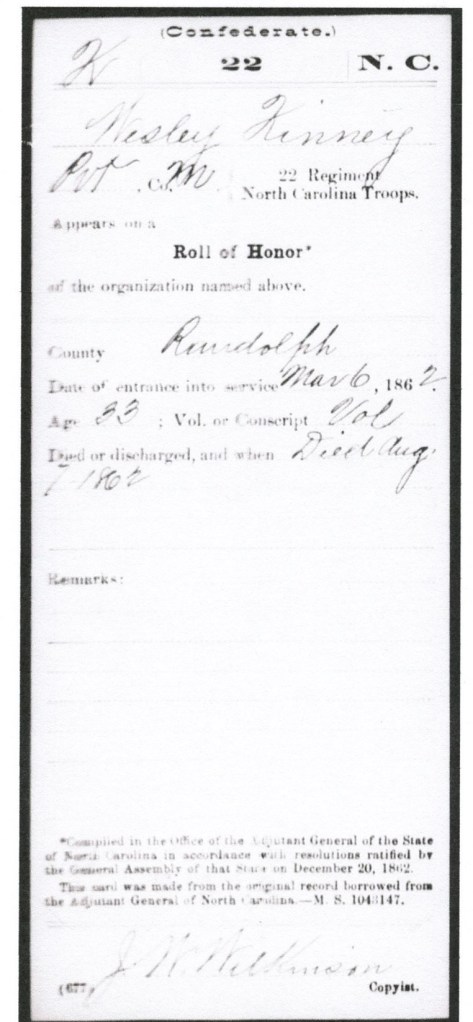 (Confederate.)
K 22 N. C.
Wesley Kinney
Pvt , Co. M, 22 Regiment
North Carolina Troops.
Appears on a
Roll of Honor*
of the organization named above.
County Randolph
Date of entrance into service Mar 6, 1862.
Age 33 ; Vol. or Conscript Vol
Died or discharged, and when Died Aug.
1862
Remarks:
*Compiled in the Office of the Adjutant General of the State
of North Carolina in accordance with resolutions ratified by
the General Assembly of that State on December 20, 1862.
This card was made from the original record borrowed from
the Adjutant General of North Carolina.—M. S. 1043147.
J. W. Wilkinson
(677) Copyist.